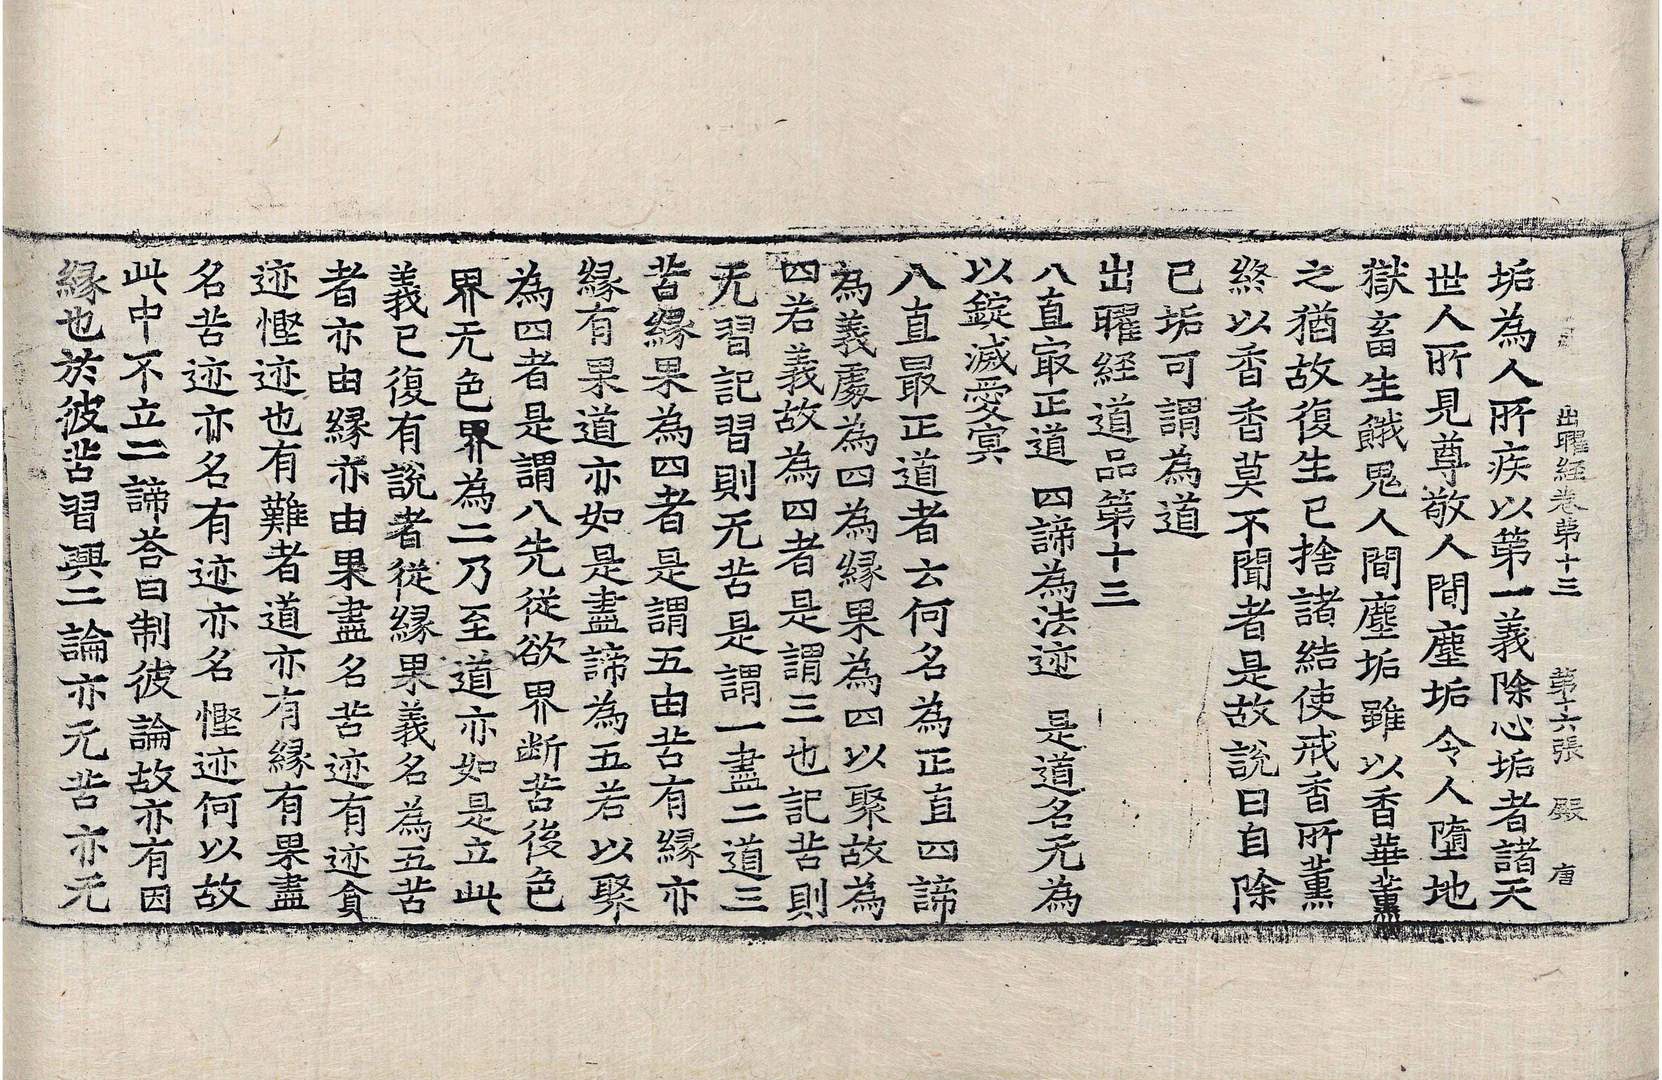 出曜經卷第十三 第十六張 殿 唐
垢為人所疾以第一義除心垢者諸天
世人所見尊敬人間塵垢令人墮地
獄畜生餓鬼人間塵垢雖以香華薰
之猶故復生已捨諸結使戒香所薰
終以香香莫不聞者是故說曰自除
已垢可謂為道
出曜經道品第十三
八直㝡正道 四諦為法迹 是道名无為
以錠滅愛冥
八直最正道者云何名為正直四諦
為義處為四為緣果為四以聚故為
四若義故為四者是謂三也記苦則
无習記習則无苦是謂一盡二道三
苦緣果為四者是謂五由苦有緣亦
緣有果道亦如是盡諦為五若以聚
為四者是謂八先從欲界断苦後色
界无色界為二乃至道亦如是立此
義已復有說者從緣果義名為五苦
者亦由緣亦由果盡名苦迹有迹貪
迹慳迹也有難者道亦有緣有果盡
名苦迹亦名有迹亦名慳迹何以故
此中不立二諦荅曰制彼論故亦有因
緣也於彼苦習興二論亦无苦亦无